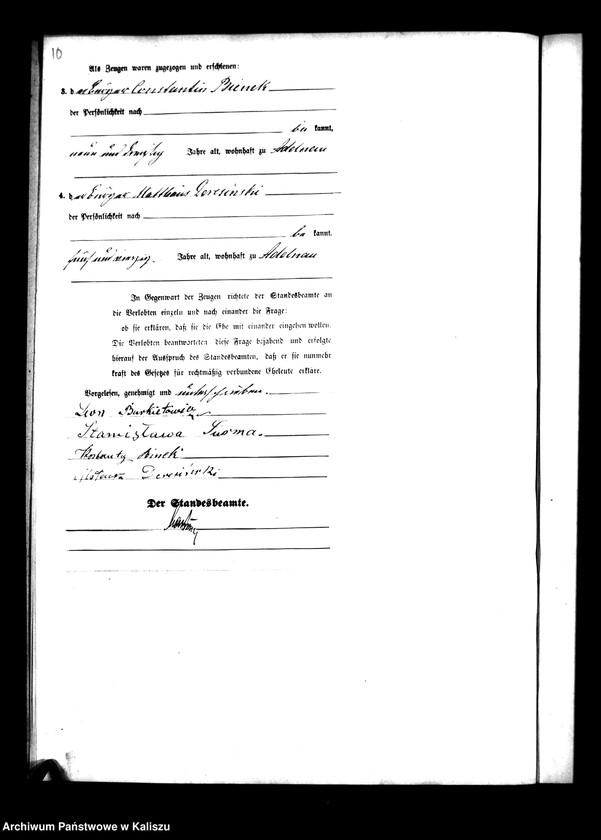 10
Als Zeugen waren zugezogen und erschienen:
3. der Bürger Constantin Bienek
der Persönlichkeit nach
be kannt,
neun und dreißig Jahre alt, wohnhaft zu Adelnau
4. der Bürger Matthäus Deresinski
der Persönlichkeit nach
be kannt.
fünf und vierzig. Jahre alt, wohnhaft zu Adelnau
In Gegenwart der Zeugen richtete der Standesbeamte an
die Verlobten einzeln und nach einander die Frage:
ob sie erklären, daß sie die Ehe mit einander eingehen wollen.
Die Verlobten beantworteten diese Frage bejahend und erfolgte
hierauf der Ausspruch des Standesbeamten, daß er sie nunmehr
kraft des Gesetzes für rechtmäßig verbundene Eheleute erkläre.
Vorgelesen, genehmigt und unterschrieben.
Leon
Stanisława
Binek
Deresiński
Der Standesbeamte.
Archiwum Państwowe w Kaliszu